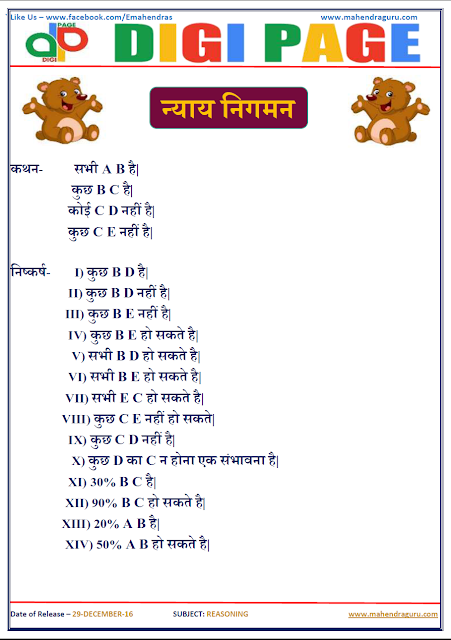 Like Us – www.facebook.com/Emahendras www.mahendraguru.com
PAGE
DIGI
DIGI PAGE
न्याय निगमन
कथन- सभी A B है|
कुछ B C है|
कोई C D नहीं है|
कुछ C E नहीं है|
निष्कर्ष- I) कुछ B D है|
II) कुछ B D नहीं है|
III) कुछ B E नहीं है|
IV) कुछ B E हो सकते है|
V) सभी B D हो सकते है|
VI) सभी B E हो सकते है|
VII) सभी E C हो सकते है|
VIII) कुछ C E नहीं हो सकते|
IX) कुछ C D नहीं है|
X) कुछ D का C न होना एक संभावना है|
XI) 30% B C है|
XII) 90% B C हो सकते है|
XIII) 20% A B है|
XIV) 50% A B हो सकते है|
Date of Release – 29-DECEMBER-16 SUBJECT: REASONING www.mahendraguru.com